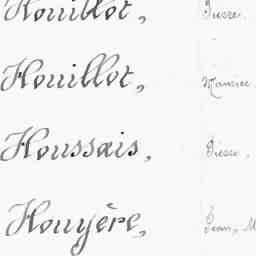 Houillot, Pierre.
Houillot, Maurice
Houssais, Pierre,
Houyère, Jean, M